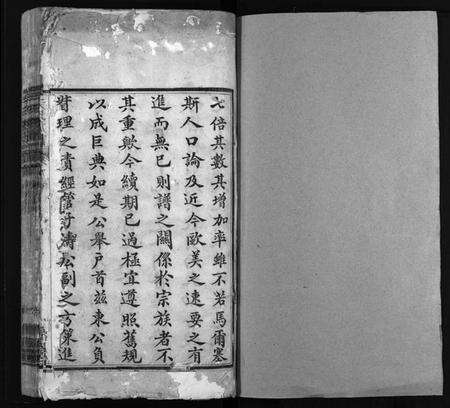 七倍其數其增加率雖不若馬爾塞
斯人口論及近今歐美之速要之有
進而無已則譜之關係於宗族者不
其重歟今續期已過極宜遵照舊規
以成巨典如是公舉戶首茲東公負
督理之責經營籌濤松副之方策進